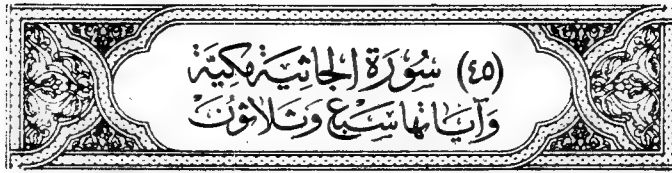 (٤٥) سُورَة الجَاثِيَة مَكيَّة
وَآيَاتهَا سَبْع وَثَلاثُونَ